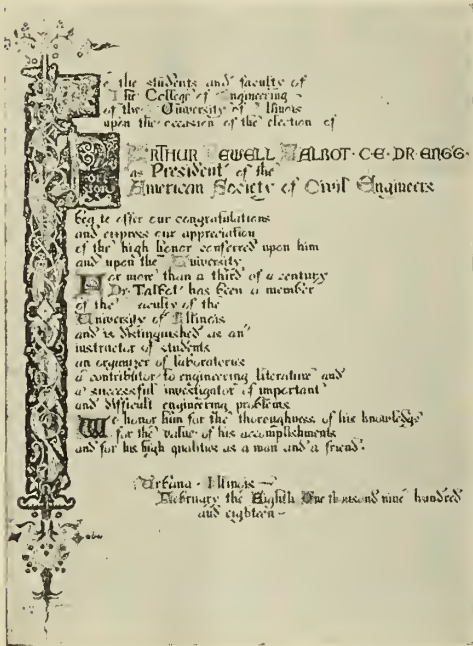 We the students and faculty of
The College of Engineering
of the University of Illinois
upon the occasion of the election of
ARTHUR NEWELL TALBOT · C·E· DR·ENGG·
as President of the
American Society of Civil Engineers
beg to offer our congratulations
and express our appreciation
of the high honor conferred upon him
and upon the University
For more than a third of a century
Dr Talbot has been a member
of the faculty of the
University of Illinois
and is distinguished as an
instructor of students
an organizer of laboratories
a contributor to engineering literature and
a successful investigator of important
and difficult engineering problems
We honor him for the thoroughness of his knowledge
for the value of his accomplishments
and for his high qualities as a man and a friend.
Urbana · Illinois ~
February the Eighth One thousand nine hundred
and eighteen ~